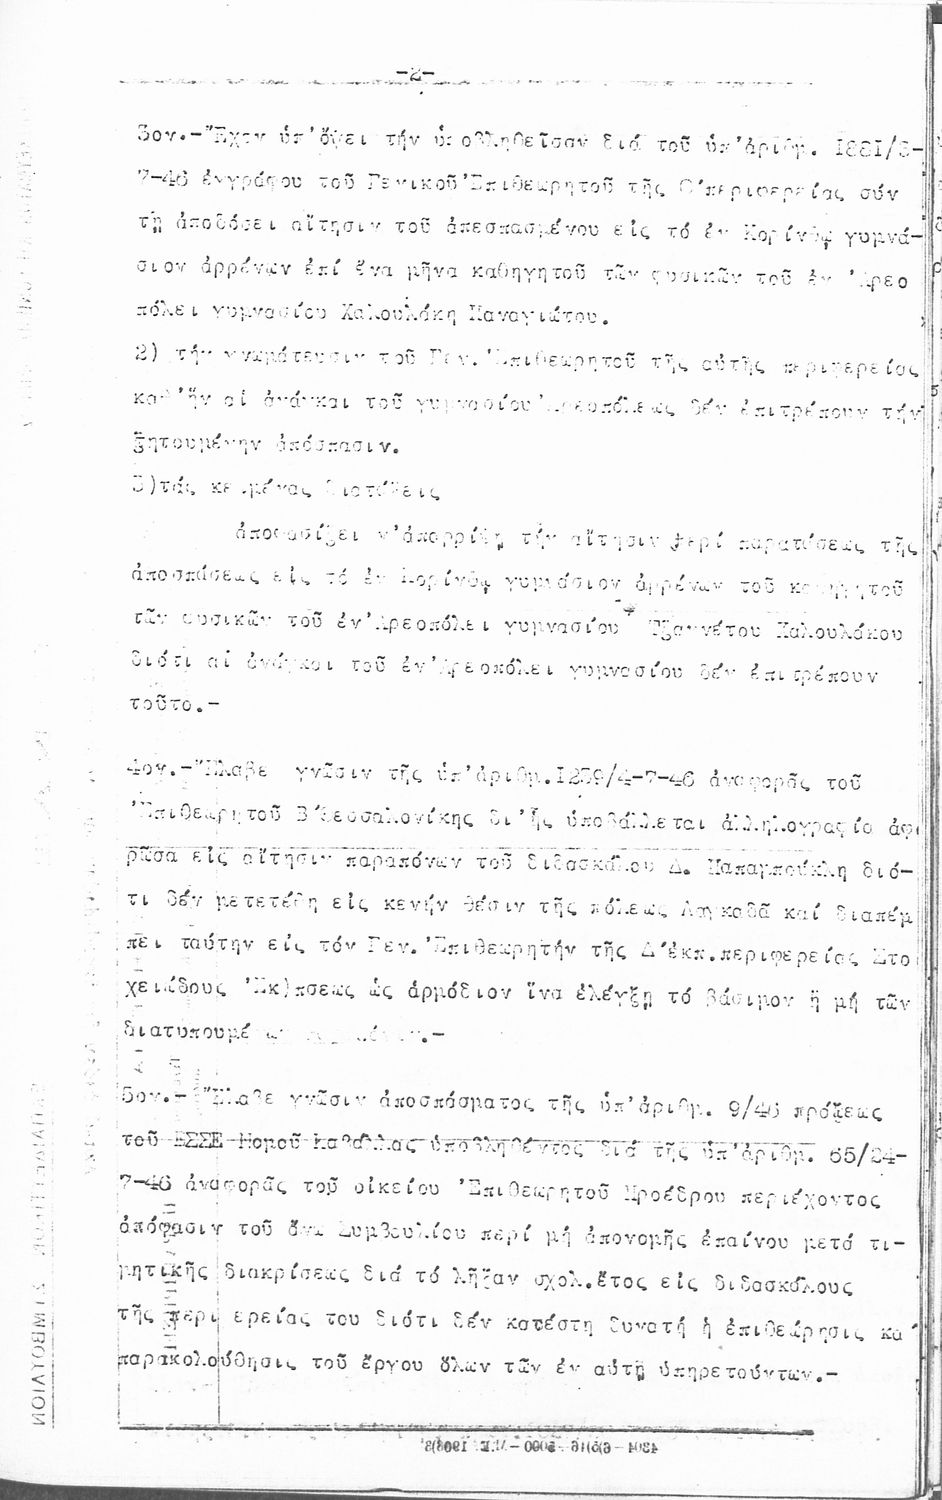 -2-
3ον.-Ἔχον ὑπ'ὄψει τήν ὑποβληθεῖσαν διά τοῦ ὑπ'ἀριθμ. 1881/3-
7-46 ἐγγράφου τοῦ Γενικοῦ Ἐπιθεωρητοῦ τῆς περιφερείας σύν
τῇ ἀποδόσει αἴτησιν τοῦ ἀπεσπασμένου εἰς τό ἐν Κορίνθῳ γυμνά-
σιον ἀρρένων ἐπί ἕνα μῆνα καθηγητοῦ τῶν φυσικῶν τοῦ ἐν Ἀρεο
πόλει γυμνασίου Χαλουλάκη Παναγιώτου.
2) τήν γνωμάτευσιν τοῦ Γεν. Ἐπιθεωρητοῦ τῆς αὐτῆς περιφερείας
καθ'ἥν αἱ ἀνάγκαι τοῦ γυμνασίου Ἀρεοπόλεως δέν ἐπιτρέπουν τήν
ζητουμένην ἀπόσπασιν.
3)τάς κειμένας διατάξεις
ἀποφασίζει ν'ἀπορρίψῃ τήν αἴτησιν περί παρατάσεως τῆς
ἀποσπάσεως εἰς τό ἐν Κορίνθῳ γυμνάσιον ἀρρένων τοῦ καθηγητοῦ
τῶν φυσικῶν τοῦ ἐν Ἀρεοπόλει γυμνασίου Τζαννέτου Χαλουλάκου
διότι αἱ ἀνάγκαι τοῦ ἐν Ἀρεοπόλει γυμνασίου δέν ἐπιτρέπουν
τοῦτο.-
4ον.-Ἔλαβε γνῶσιν τῆς ὑπ'ἀριθμ.1259/4-7-46 ἀναφορᾶς τοῦ
Ἐπιθεωρητοῦ Β΄Θεσσαλονίκης δι'ἧς ὑποβάλλεται ἀλληλογραφία ἀφο
ρῶσα εἰς αἴτησιν παραπόνων τοῦ διδασκάλου Δ. Παπαμπούκλη διό-
τι δέν μετετέθη εἰς κενήν θέσιν τῆς πόλεως Λαγκαδᾶ καί διαπέμ
πει ταύτην εἰς τόν Γεν. Ἐπιθεωρητήν τῆς Δ΄ἐκπ.περιφερείας Στο
χειώδους Ἐκ)πσεως ὡς ἁρμόδιον ἵνα ἐλέγξῃ τό βάσιμον ἤ μή τῶν
διατυπουμένων .-
5ον.- Ἔλαβε γνῶσιν ἀποσπάσματος τῆς ὑπ'ἀριθμ. 9/46 πράξεως
τοῦ ΕΣΣΕ Νομοῦ Καβάλλας ὑποβληθέντος διά τῆς ὑπ'ἀριθμ. 65/24-
7-46 ἀναφορᾶς τοῦ οἰκείου Ἐπιθεωρητοῦ Προέδρου περιέχοντος
ἀπόφασιν τοῦ ἄνω Συμβουλίου περί μή ἀπονομῆς ἐπαίνου μετά τι-
μητικῆς διακρίσεως διά τό λῆξαν σχολ.ἔτος εἰς διδασκάλους
τῆς περι ερείας του διότι δέν κατέστη δυνατή ἡ ἐπιθεώρησις κα
παρακολούθησις τοῦ ἔργου ὅλων τῶν ἐν αὐτῇ ὑπηρετούντων.-